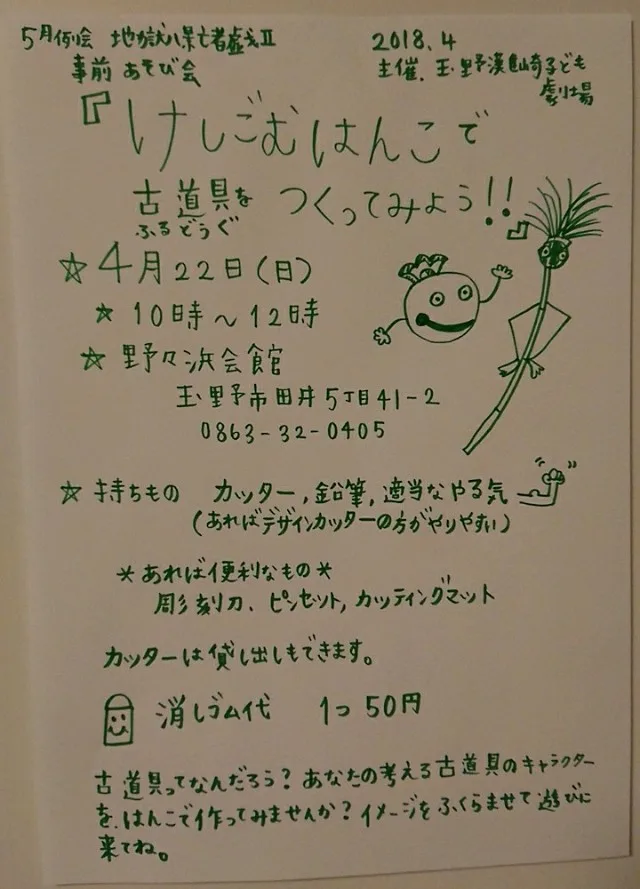 5月例会 地獄八景亡者戯Ⅱ
事前 あそび会
2018.4
主催、玉・野灘崎子ども
劇場
『けしごむはんこで
古道具を つくってみよう!!』
ふるどうぐ
☆4月22日(日)
☆10時～12時
☆野々浜会館
玉・野市田井5丁目41-2
0863-32-0405
☆持ちもの カッター,鉛筆,適当なやる気
(あればデザインカッターの方がやりやすい)
*あれば便利なもの*
彫刻刀、ピンセット,カッティングマット
カッターは貸し出しもできます。
消しゴム代 1つ 50円
古道具ってなんだろう?あなたの考える古道具のキャラクター
を、はんこで作ってみませんか?イメージをふくらませて遊びに
来てね。